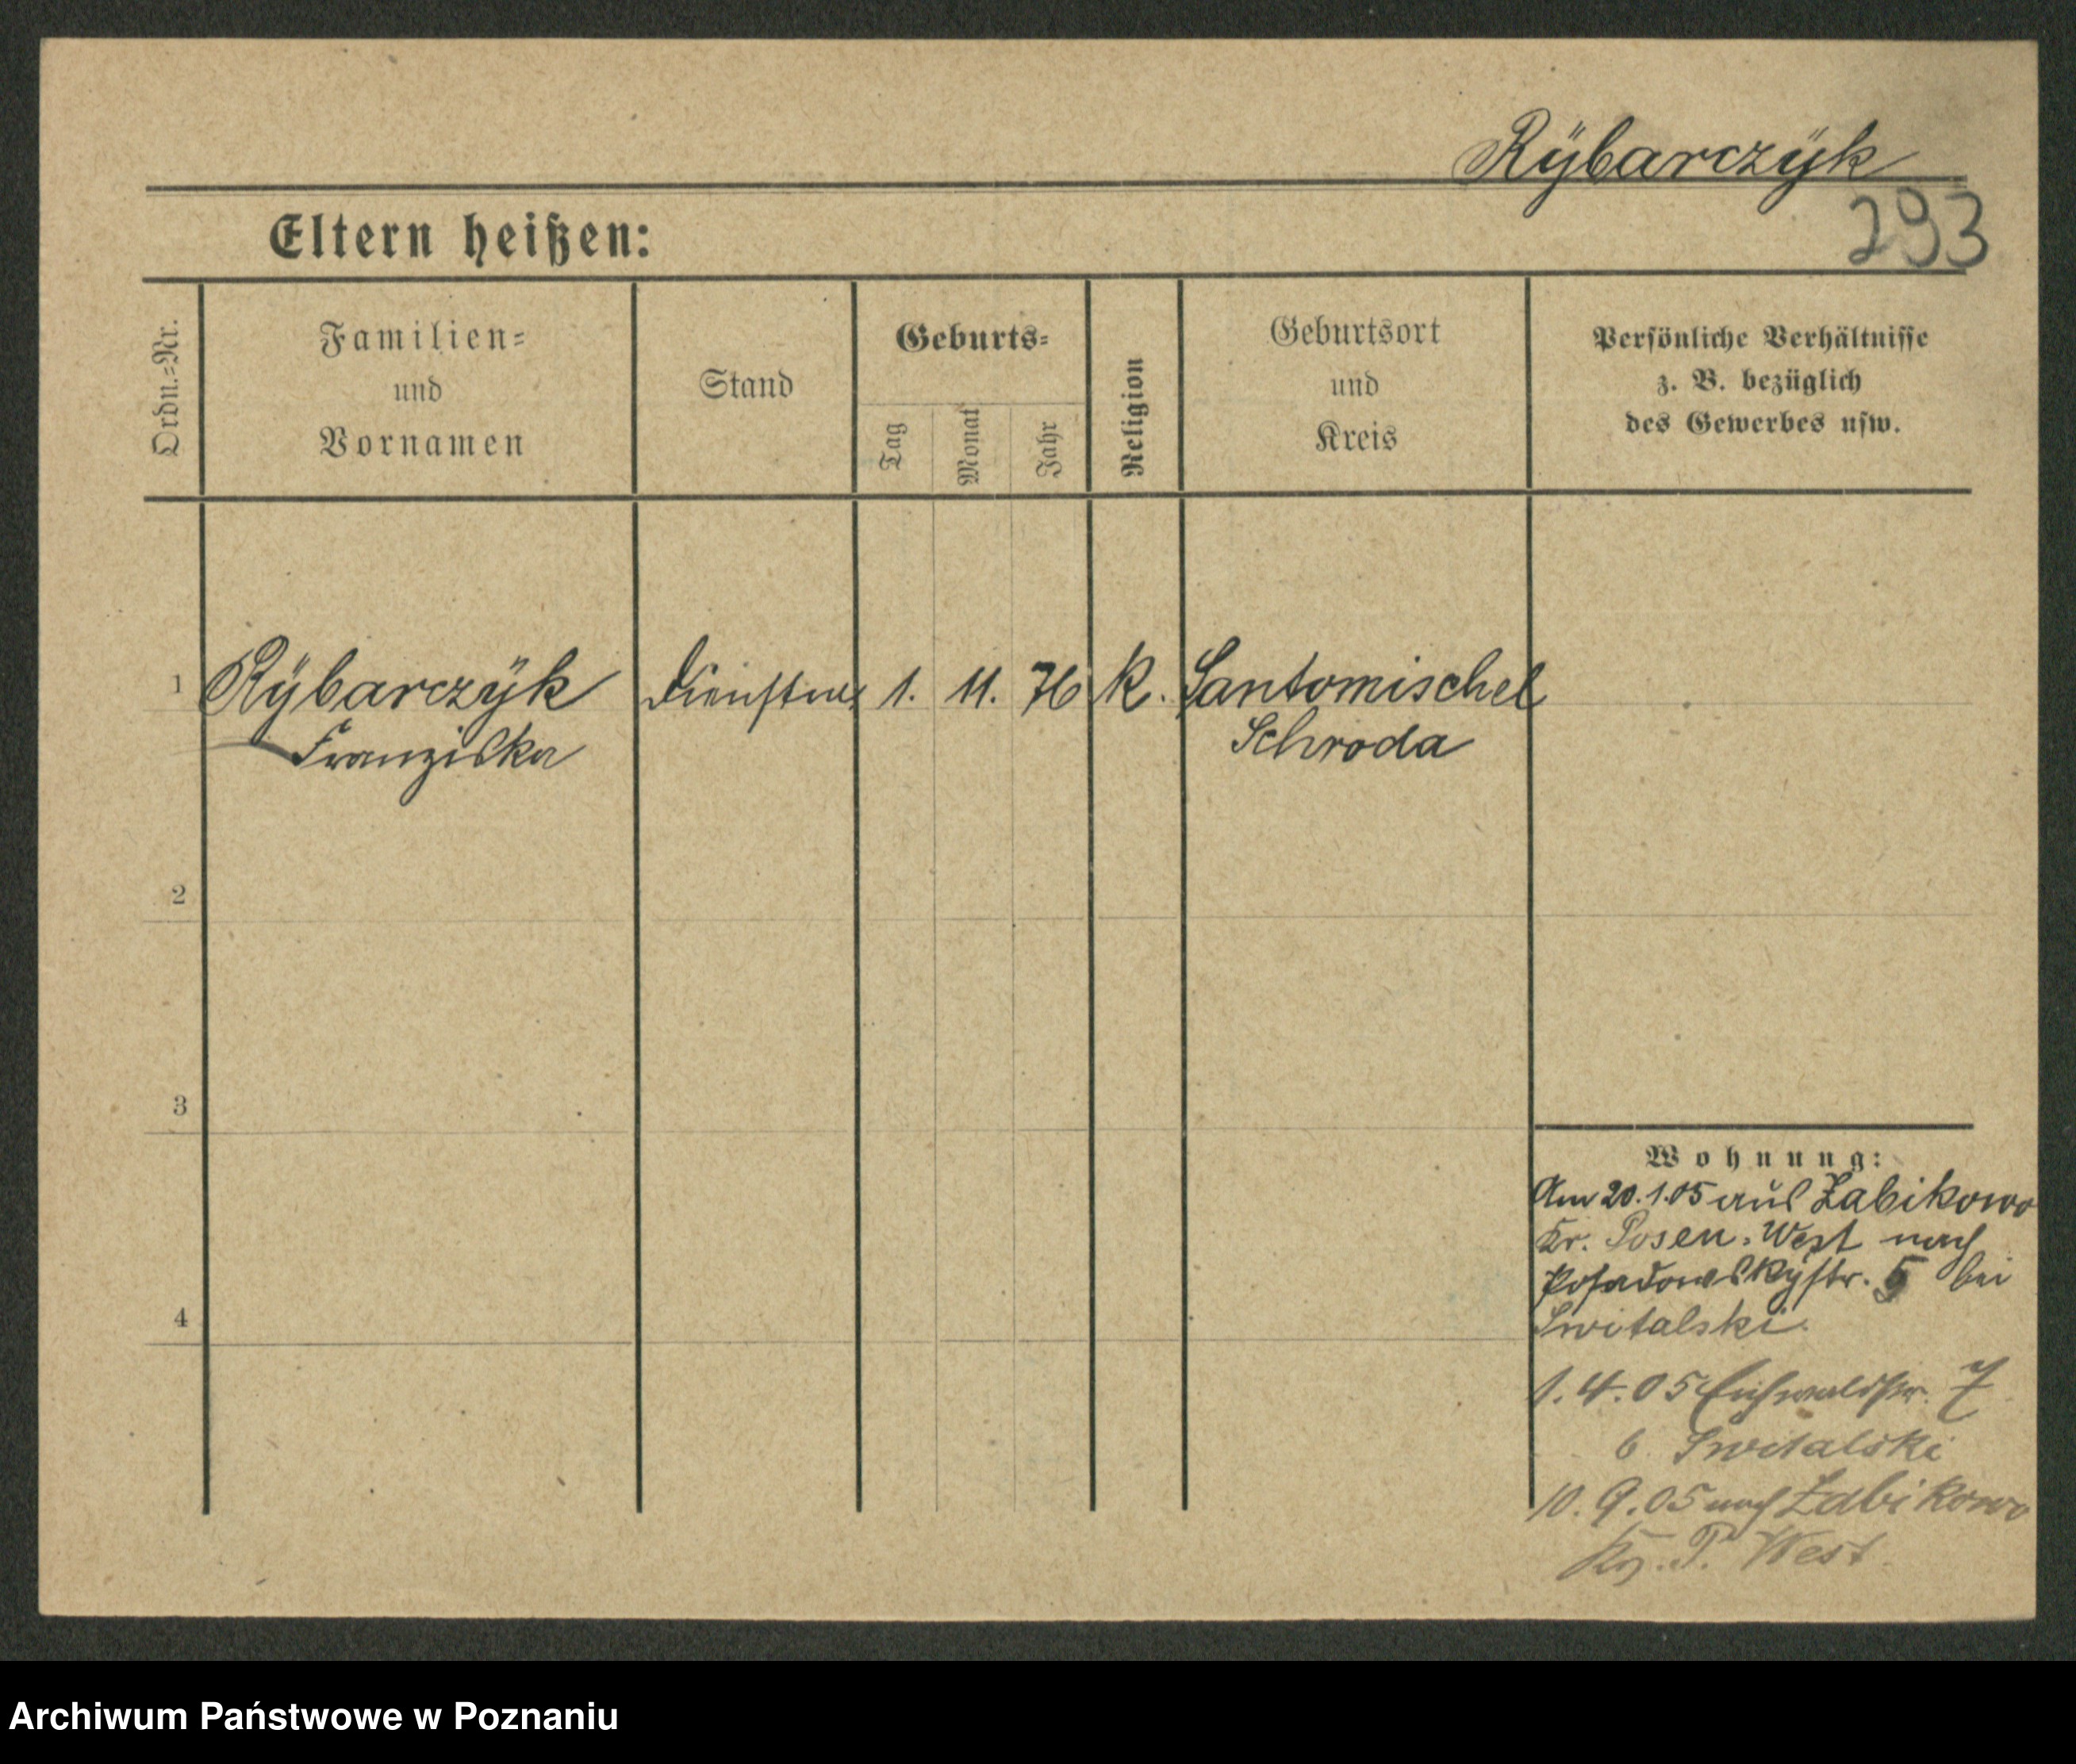 Rÿbarczÿk
293
Eltern heißen:
Ordn.-Nr.
Familien-
und
Vornamen
Stand
Geburts-
Tag
Monat
Jahr
Religion
Geburtsort
und
Kreis
Persönliche Verhältnisse
z. B. bezüglich
des Gewerbes usw.
1 Rÿbarczÿk 1. 11. 76 K. Santomischel
Franziska Schroda
2
3
4
Wohnung:
Am 20.1.05 aus Zabikowo
Kr. Posen-West nach
Posadowskÿstr. 5 bei
Switalski.
1.4.05 Eichwaldstr. 7
b Switalski
10.9.05 nach Zabikowo
Kr. P. West.
Archiwum Państwowe w Poznaniu